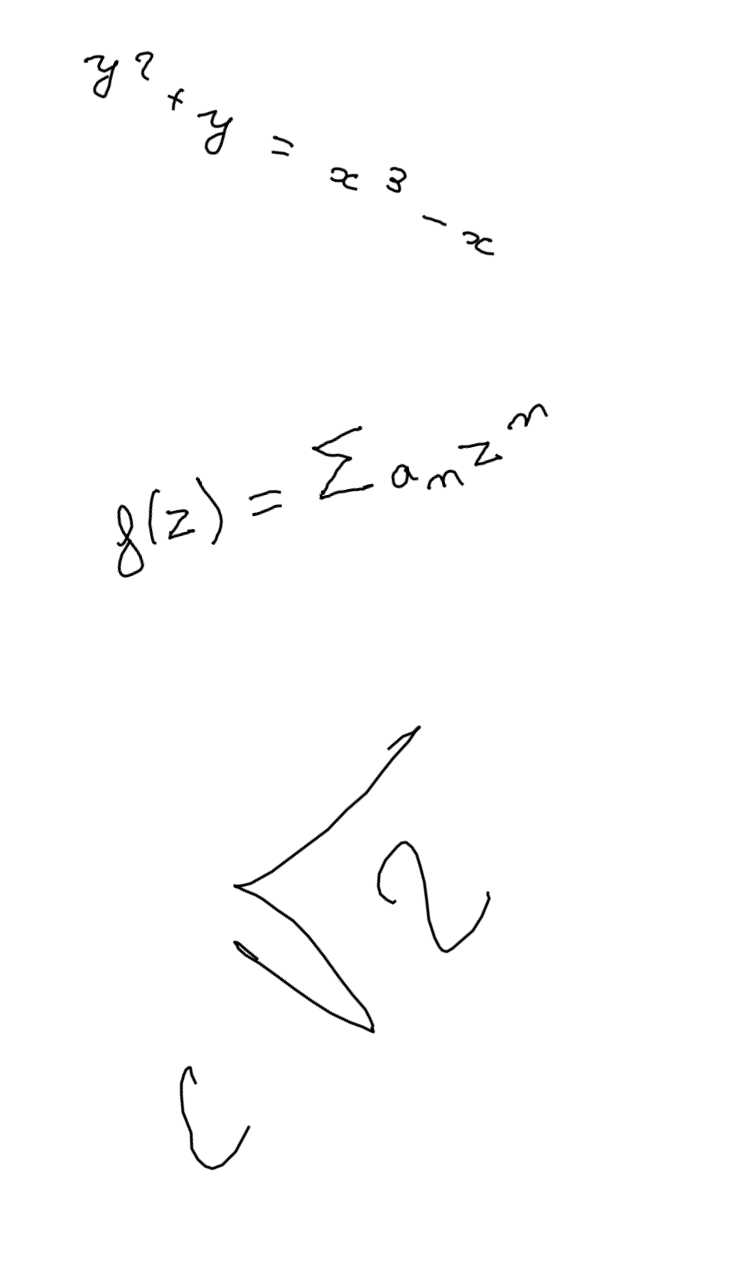 y² + y = x³ - x
f(z) = Σ aₙzⁿ